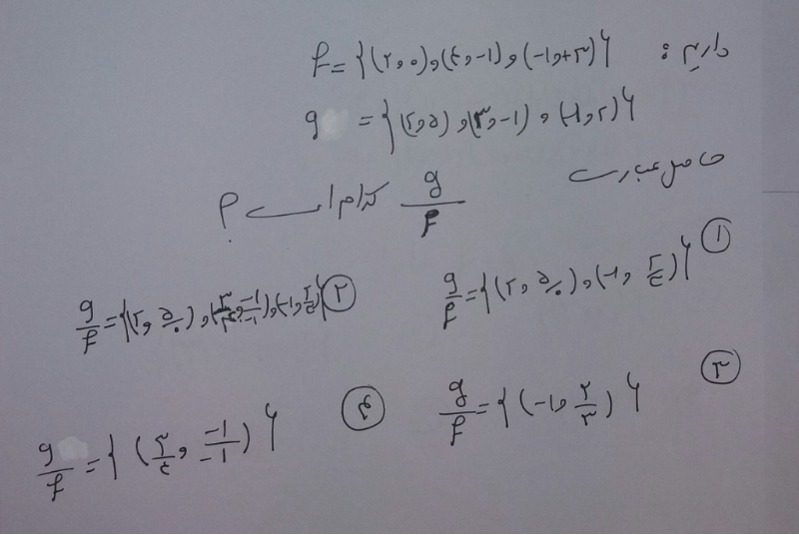 داریم: f = {(۲,۰), (۴,-۱), (-۱,+۳)}
g = {(۲,۵), (۳,-۱), (-۱,۲)}
حاصل عبارت g/f کدام است؟
① g/f = {(۲, ۵/۰), (-۱, ۲/۴)}
② g/f = {(۲, ۵/۰), (۳/۴, -۱/-۱), (-۱, ۲/۴)}
③ g/f = {(-۱, ۲/۳)}
④ g/f = {(۳/۴, -۱/-۱)}